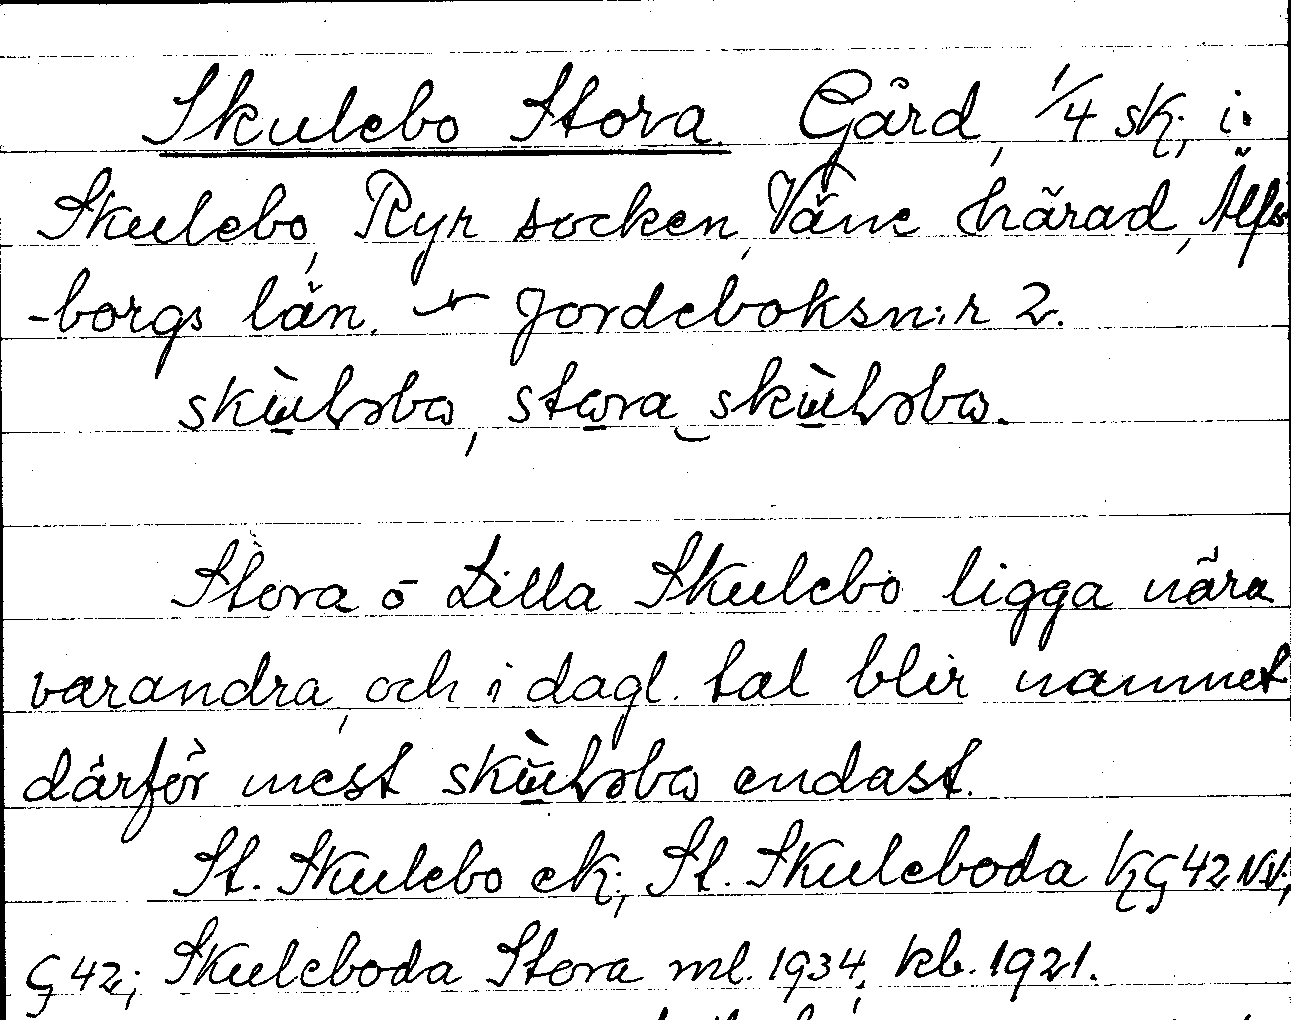 Skulebo Stora. Gård, 1/4 sk., i
Skulebo, Ryr socken, Väne härad, Älfs
-borgs län. Jordeboksn:r 2.
stora
Stora o Lilla Skulebo ligga nära
varandra, och i dagl. tal blir namnet
därför mest endast.
St. Skulebo ek; St. Skuleboda KG 42 NV;
G 42; Skuleboda Stora ml. 1934, kb. 1921.